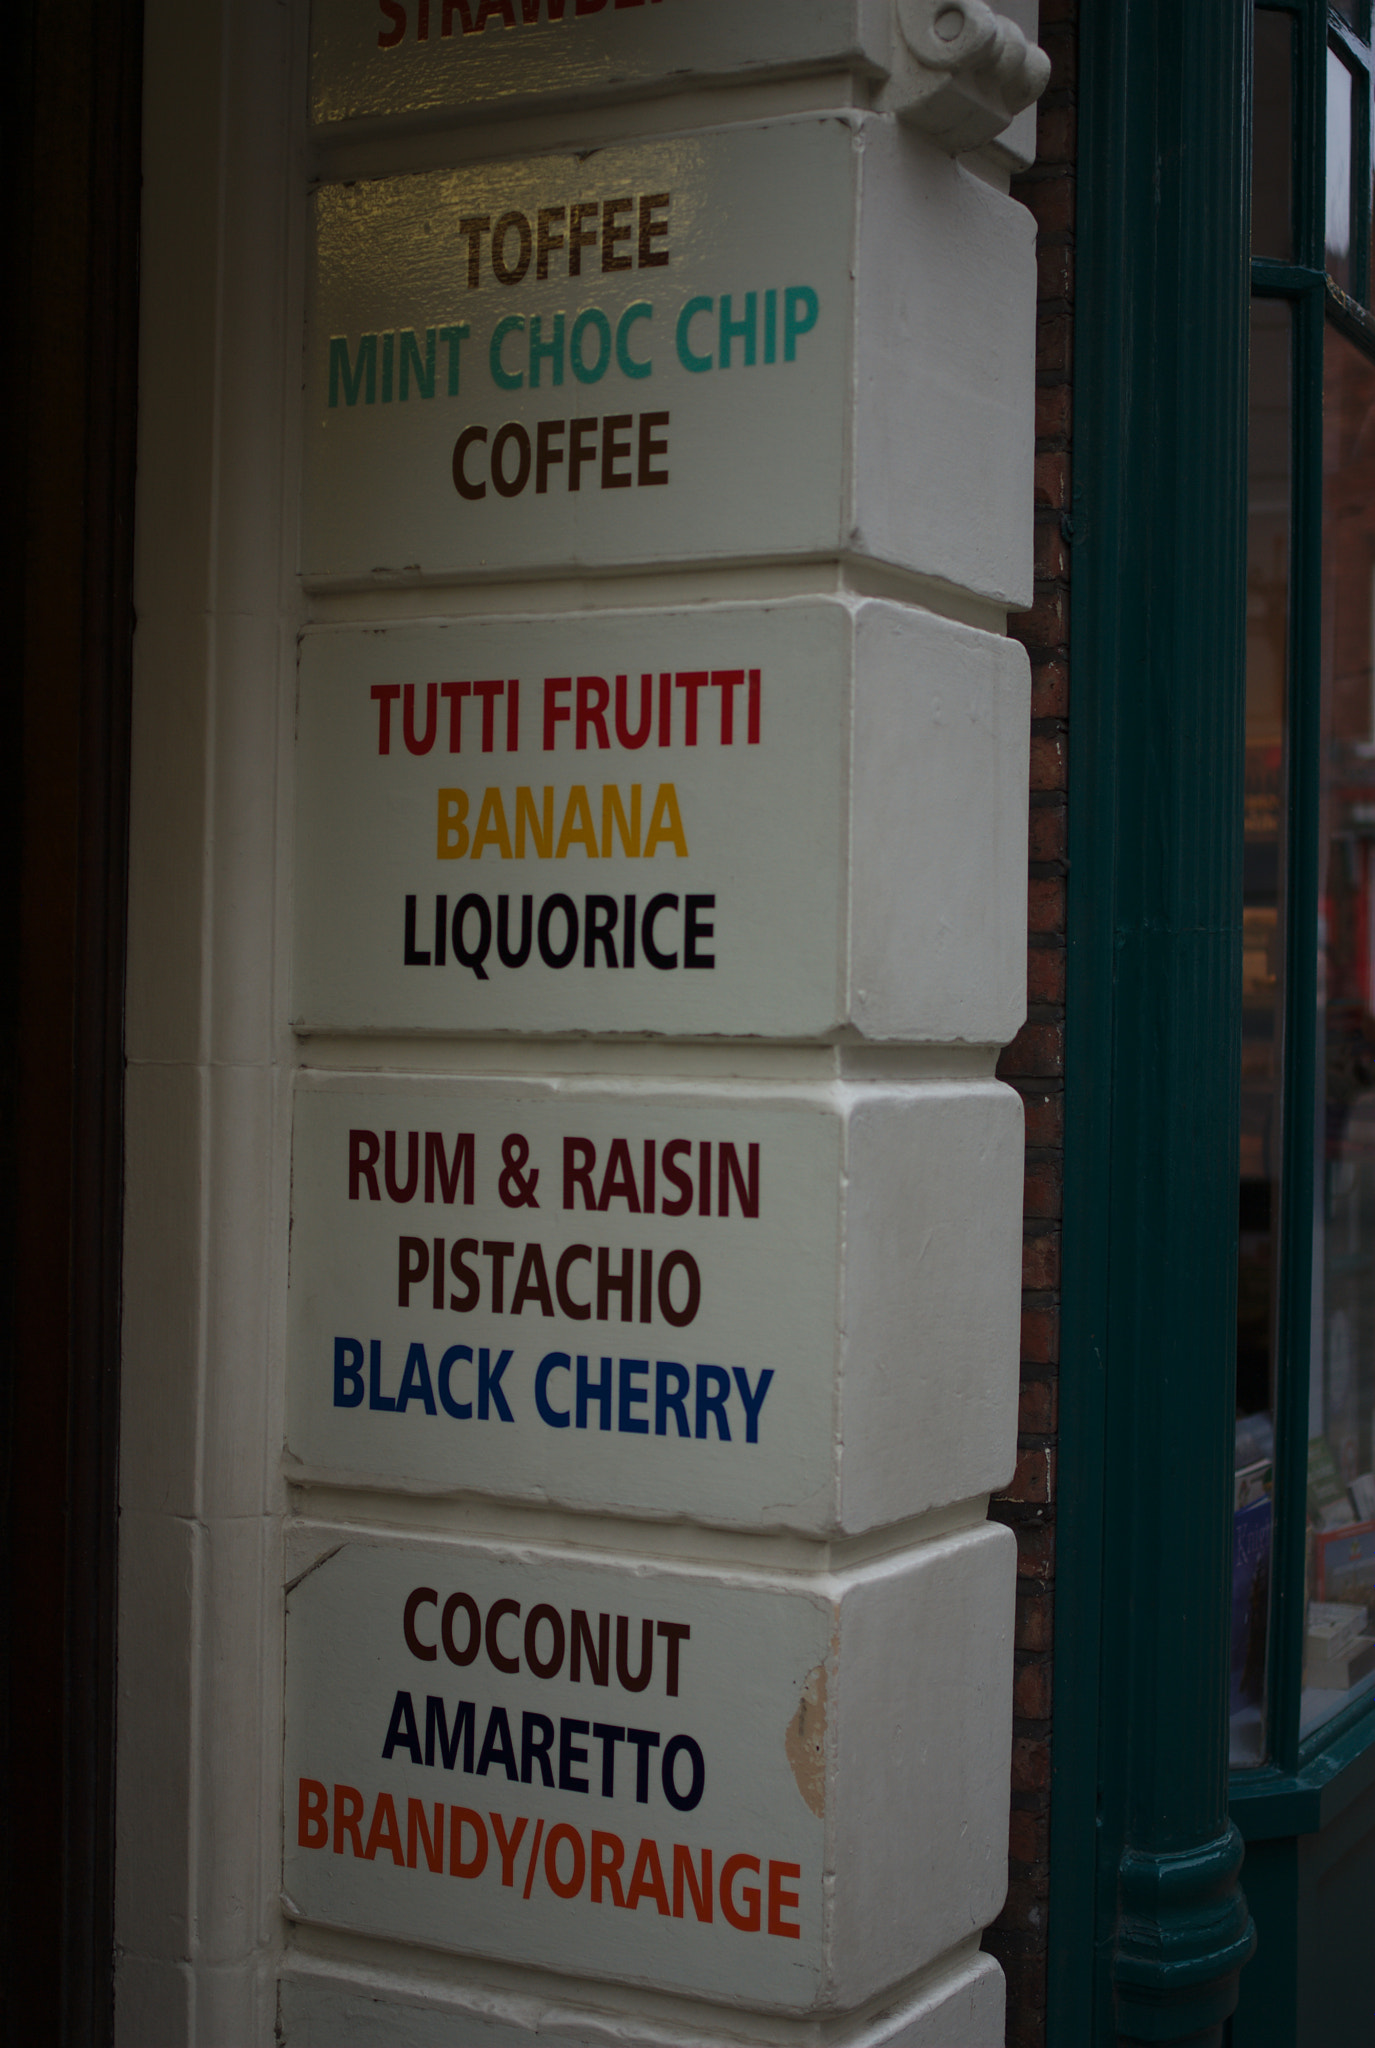 TOFFEE
MINT CHOC CHIP
COFFEE
TUTTI FRUITTI
BANANA
LIQUORICE
RUM & RAISIN
PISTACHIO
BLACK CHERRY
COCONUT
AMARETTO
BRANDY/ORANGE